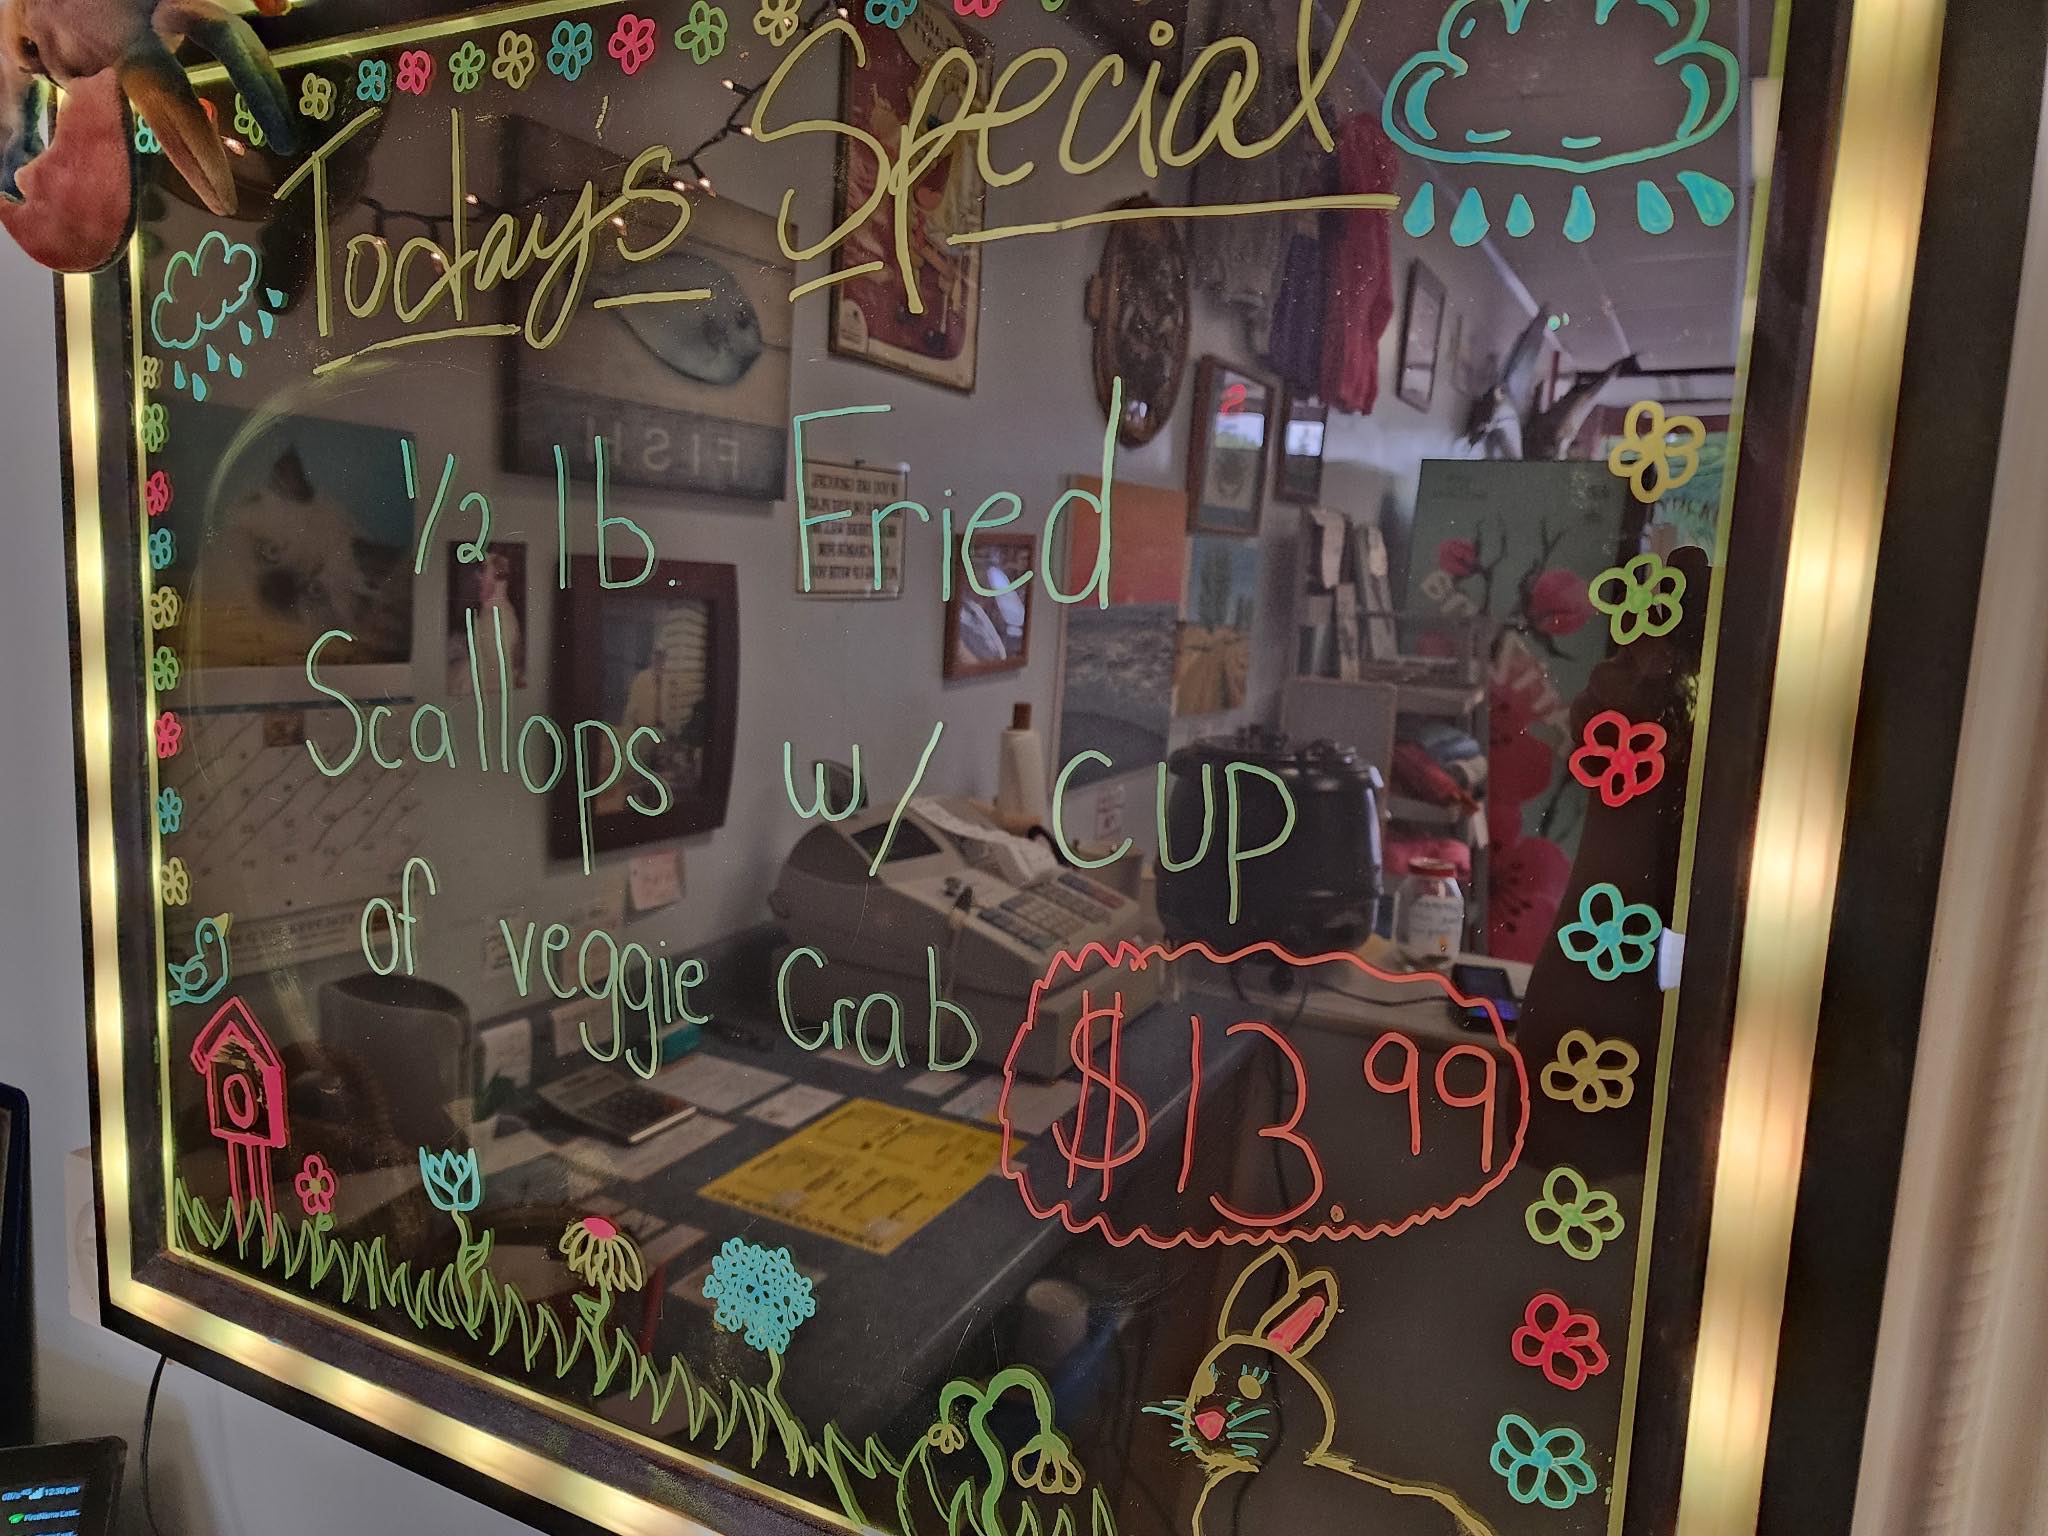 Todays Special
1/2 lb. Fried
Scallops w/ cup
of veggie Crab
$13.99
FISH
12:30 pm